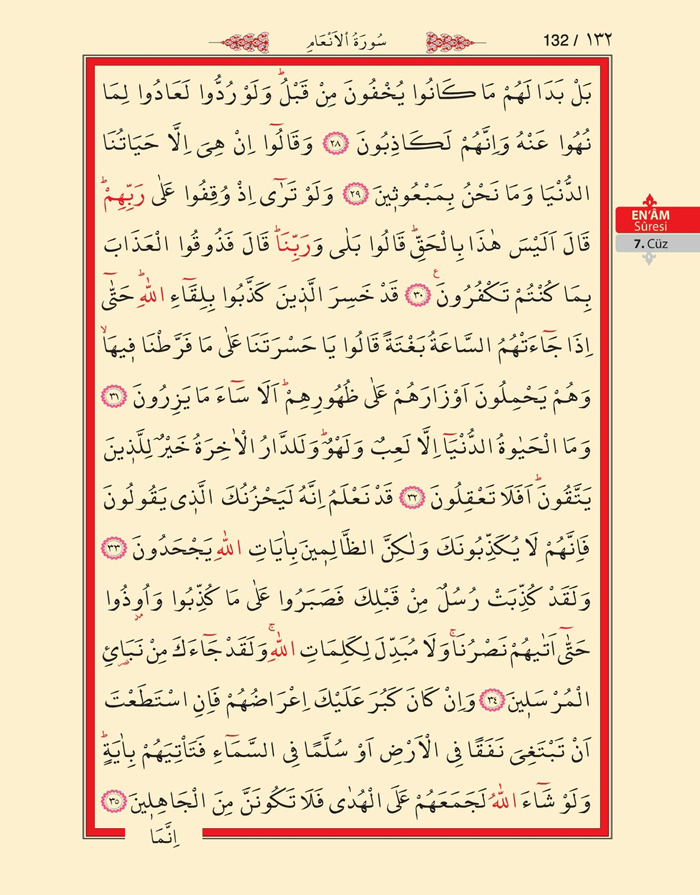 132 / ١٣٢
سُورَةُ الْاَنْعَامِ
بَلْ بَدَا لَهُمْ مَا كَانُوا يُخْفُونَ مِنْ قَبْلُۜ وَلَوْ رُدُّوا لَعَادُوا لِمَا
نُهُوا عَنْهُ وَاِنَّهُمْ لَكَاذِبُونَ ﴿٢٨﴾ وَقَالُٓوا اِنْ هِيَ اِلَّا حَيَاتُنَا
الدُّنْيَا وَمَا نَحْنُ بِمَبْعُوث۪ينَ ﴿٢٩﴾ وَلَوْ تَرٰٓى اِذْ وُقِفُوا عَلٰى رَبِّهِمْۜ
قَالَ اَلَيْسَ هٰذَا بِالْحَقِّۜ قَالُوا بَلٰى وَرَبِّنَاۜ قَالَ فَذُوقُوا الْعَذَابَ
بِمَا كُنْتُمْ تَكْفُرُونَ۟ ﴿٣٠﴾ قَدْ خَسِرَ الَّذ۪ينَ كَذَّبُوا بِلِقَٓاءِ اللّٰهِۜ حَتّٰٓى
اِذَا جَٓاءَتْهُمُ السَّاعَةُ بَغْتَةً قَالُوا يَا حَسْرَتَنَا عَلٰى مَا فَرَّطْنَا ف۪يهَاۙ
وَهُمْ يَحْمِلُونَ اَوْزَارَهُمْ عَلٰى ظُهُورِهِمْۜ اَلَا سَٓاءَ مَا يَزِرُونَ ﴿٣١﴾
وَمَا الْحَيٰوةُ الدُّنْيَٓا اِلَّا لَعِبٌ وَلَهْوٌۜ وَلَلدَّارُ الْاٰخِرَةُ خَيْرٌ لِلَّذ۪ينَ
يَتَّقُونَۜ اَفَلَا تَعْقِلُونَ ﴿٣٢﴾ قَدْ نَعْلَمُ اِنَّهُ لَيَحْزُنُكَ الَّذ۪ي يَقُولُونَ
فَاِنَّهُمْ لَا يُكَذِّبُونَكَ وَلٰكِنَّ الظَّالِم۪ينَ بِاٰيَاتِ اللّٰهِ يَجْحَدُونَ ﴿٣٣﴾
وَلَقَدْ كُذِّبَتْ رُسُلٌ مِنْ قَبْلِكَ فَصَبَرُوا عَلٰى مَا كُذِّبُوا وَاُو۫ذُوا
حَتّٰٓى اَتٰيهُمْ نَصْرُنَاۚ وَلَا مُبَدِّلَ لِكَلِمَاتِ اللّٰهِۚ وَلَقَدْ جَٓاءَكَ مِنْ نَبَا۬ئِ
الْمُرْسَل۪ينَ ﴿٣٤﴾ وَاِنْ كَانَ كَبُرَ عَلَيْكَ اِعْرَاضُهُمْ فَاِنِ اسْتَطَعْتَ
اَنْ تَبْتَغِيَ نَفَقًا فِي الْاَرْضِ اَوْ سُلَّمًا فِي السَّمَٓاءِ فَتَأْتِيَهُمْ بِاٰيَةٍۜ
وَلَوْ شَٓاءَ اللّٰهُ لَجَمَعَهُمْ عَلَى الْهُدٰى فَلَا تَكُونَنَّ مِنَ الْجَاهِل۪ينَ ﴿٣٥﴾
اِنَّمَا
EN'ÂM
Sûresi
7. Cüz